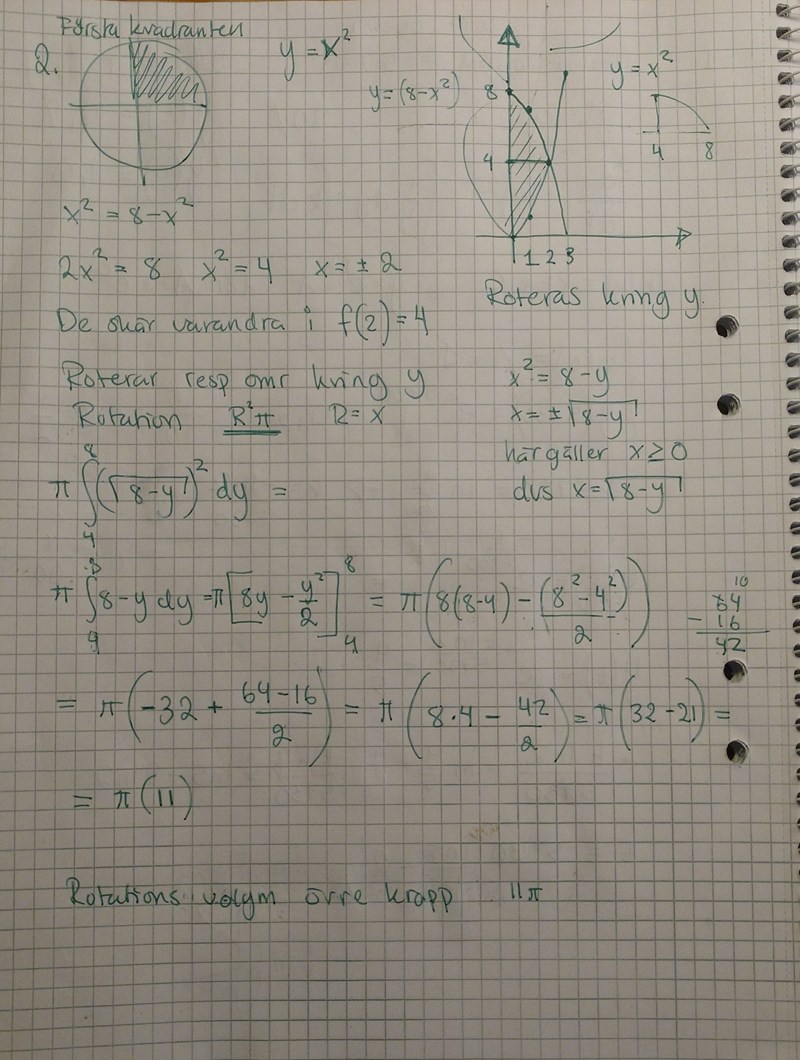 Första kvadranten
2.
y = x²
y = (8-x²)
8
4
1 2 3
y = x²
4 8
x² = 8-x²
2x² = 8 x² = 4 x = ± 2
Roteras kring y.
De skär varandra i f(2) = 4
Roterar resp omr kring y
Rotation R²π R = x
x² = 8-y
x = ±√(8-y)
här gäller x ≥ 0
dvs x = √(8-y)
π ∫₄⁸ (√(8-y))² dy =
π ∫₄⁸ 8-y dy = π [8y - y²/2]₄⁸ = π (8(8-4) - (8²-4²)/2)
10
64
- 16
42
= π (-32 + (64-16)/2) = π (8·4 - 42/2) = π (32-21) =
= π (11)
Rotations volym övre kropp 11π